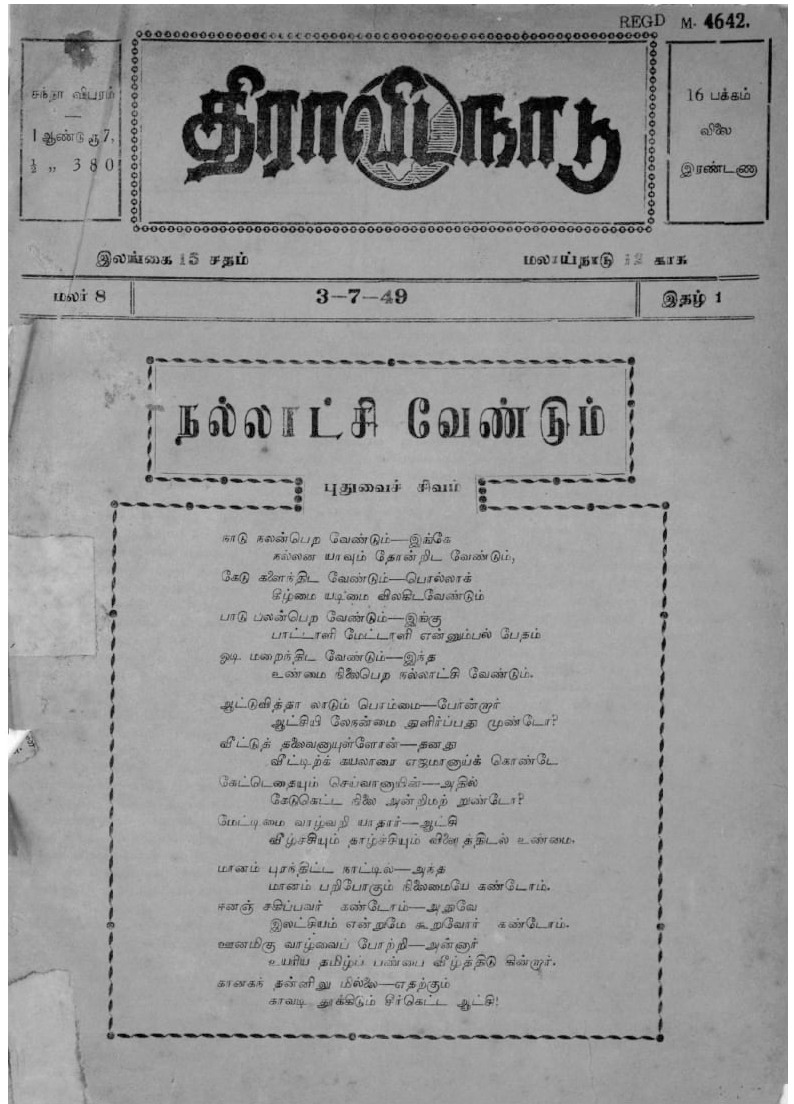 REGD M. 4642.
சந்தா விபரம்
1 ஆண்டு ரூ 7,
½ ,, 3 8 0
திராவிடநாடு
16 பக்கம்
விலை
இரண்டணா
இலங்கை 15 சதம்
மலாய்நாடு 12 காசு
மலர் 8
3-7-49
இதழ் 1
நல்லாட்சி வேண்டும்
புதுவைச் சிவம்
நாடு நலன்பெற வேண்டும்—இங்கே
நல்லன யாவும் தோன்றிட வேண்டும்,
கேடு களைந்திட வேண்டும்—பொல்லாக்
கீழ்மை யடிமை விலகிடவேண்டும்
பாடு பலன்பெற வேண்டும்—இங்கு
பாட்டாளி மேட்டாளி என்னும்பல் பேதம்
ஒடி மறைந்திட வேண்டும்—இந்த
உண்மை நிலைபெற நல்லாட்சி வேண்டும்.
ஆட்டுவித்தா லாடும் பொம்மை—போன்றார்
ஆட்சியி லேநன்மை துளிர்ப்பது முண்டோ?
வீட்டுத் தலைவனாயுள்ளோன்—தனது
வீட்டிற்க் கயலாரை எஜமானாய்க் கொண்டே
கேட்டெதையும் செய்வானாயின்—அதில்
கேடுகெட்ட நிலை அன்றிமற் றுண்டோ?
மேட்டிமை வாழ்வறி யாதார்—ஆட்சி
வீழ்ச்சியும் தாழ்ச்சியும் விளைத்திடல் உண்மை.
மானம் புரந்திட்ட நாட்டில்—அந்த
மானம் பறிபோகும் நிலைமையே கண்டோம்.
ஈனஞ் சகிப்பவர் கண்டோம்—அதுவே
இலட்சியம் என்றுமே கூறுவோர் கண்டோம்.
ஊனமிகு வாழ்வைப் போற்றி—அன்னார்
உயரிய தமிழ்ப் பண்பை வீழ்த்திடு கின்றார்.
கானகந் தன்னிலு மில்லை—எதற்கும்
காவடி தூக்கிடும் சீர்கெட்ட ஆட்சி!